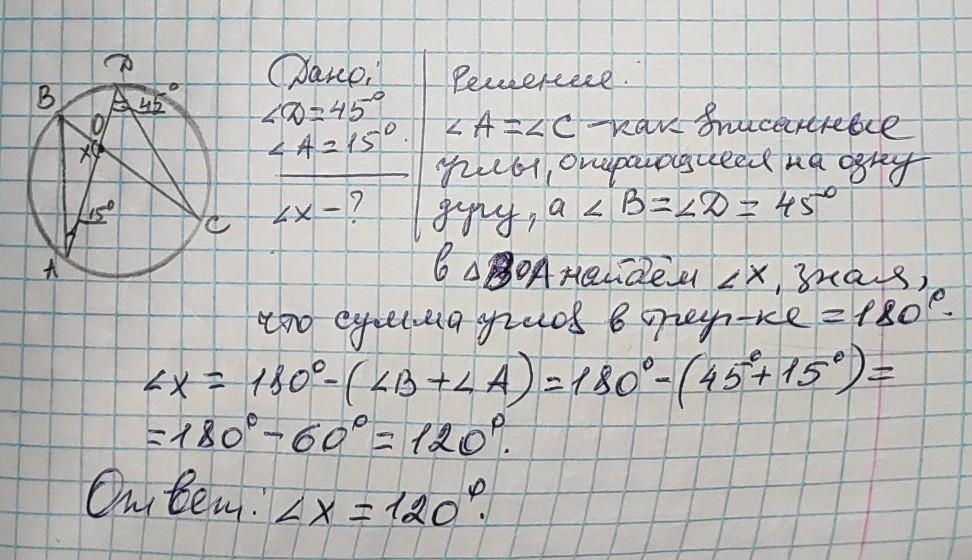 D
B
45°
O
X
15°
C
A
Дано:
∠D=45°
∠A=15°.
∠x-?
Решение.
∠A=∠C-как вписанные
углы, опирающиеся на одну
дугу, а ∠B=∠D=45°
в △BOA найдём ∠x, зная,
что сумма углов в треуг-ке =180°.
∠x = 180°-(∠B+∠A)=180°-(45°+15°)=
=180°-60°=120°.
Ответ: ∠x=120°.